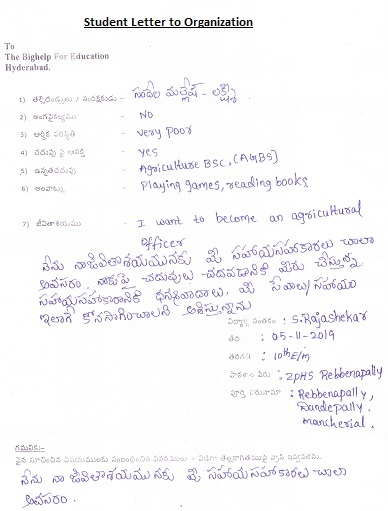 Student Letter to Organization
To
The Bighelp For Education
Hyderabad.
1) తల్లిదండ్రులు / సంరక్షకుడు - సుందిల మల్లేష్ - లక్ష్మి
2) అంగవైకల్యము - NO
3) ఆర్థిక పరిస్థితి - very poor
4) చదువు పై ఆసక్తి - yes
5) ఉన్నతచదువు - Agriculture BSC, (AGBS)
6) అలవాట్లు - Playing games, reading books
7) జీవితాశయము - I want to become an agricultural
officer
నేను నా జీవితాశయమునకు మీ సహాయసహాకారలు చాలా
అవసరం. నాకుపై చదువులు చదవడానికి మీరు చేస్తున్న
సహాయసహాకారానికి ధన్యవాదాలు. మీ సేవాలు/సహాయం
ఇలాగే కోనసాగించాలని ఆశిస్తున్నాను
విద్యార్థి సంతకం : S.Rajashekar
తేది : 05-11-2019
తరగతి : 10th E/m
పాఠశాల పేరు : ZPHS Rebbenapally
పూర్తి చిరునామా : Rebbenapally,
Dandepally.
mancherial.
గమనిక:-
పైన సూచించిన విషయములకు సంబంధించిన వివరములు -
నేను నా జీవితాశయమునకు మీ సహాయసహాకారలు చాలా
అవసరం.